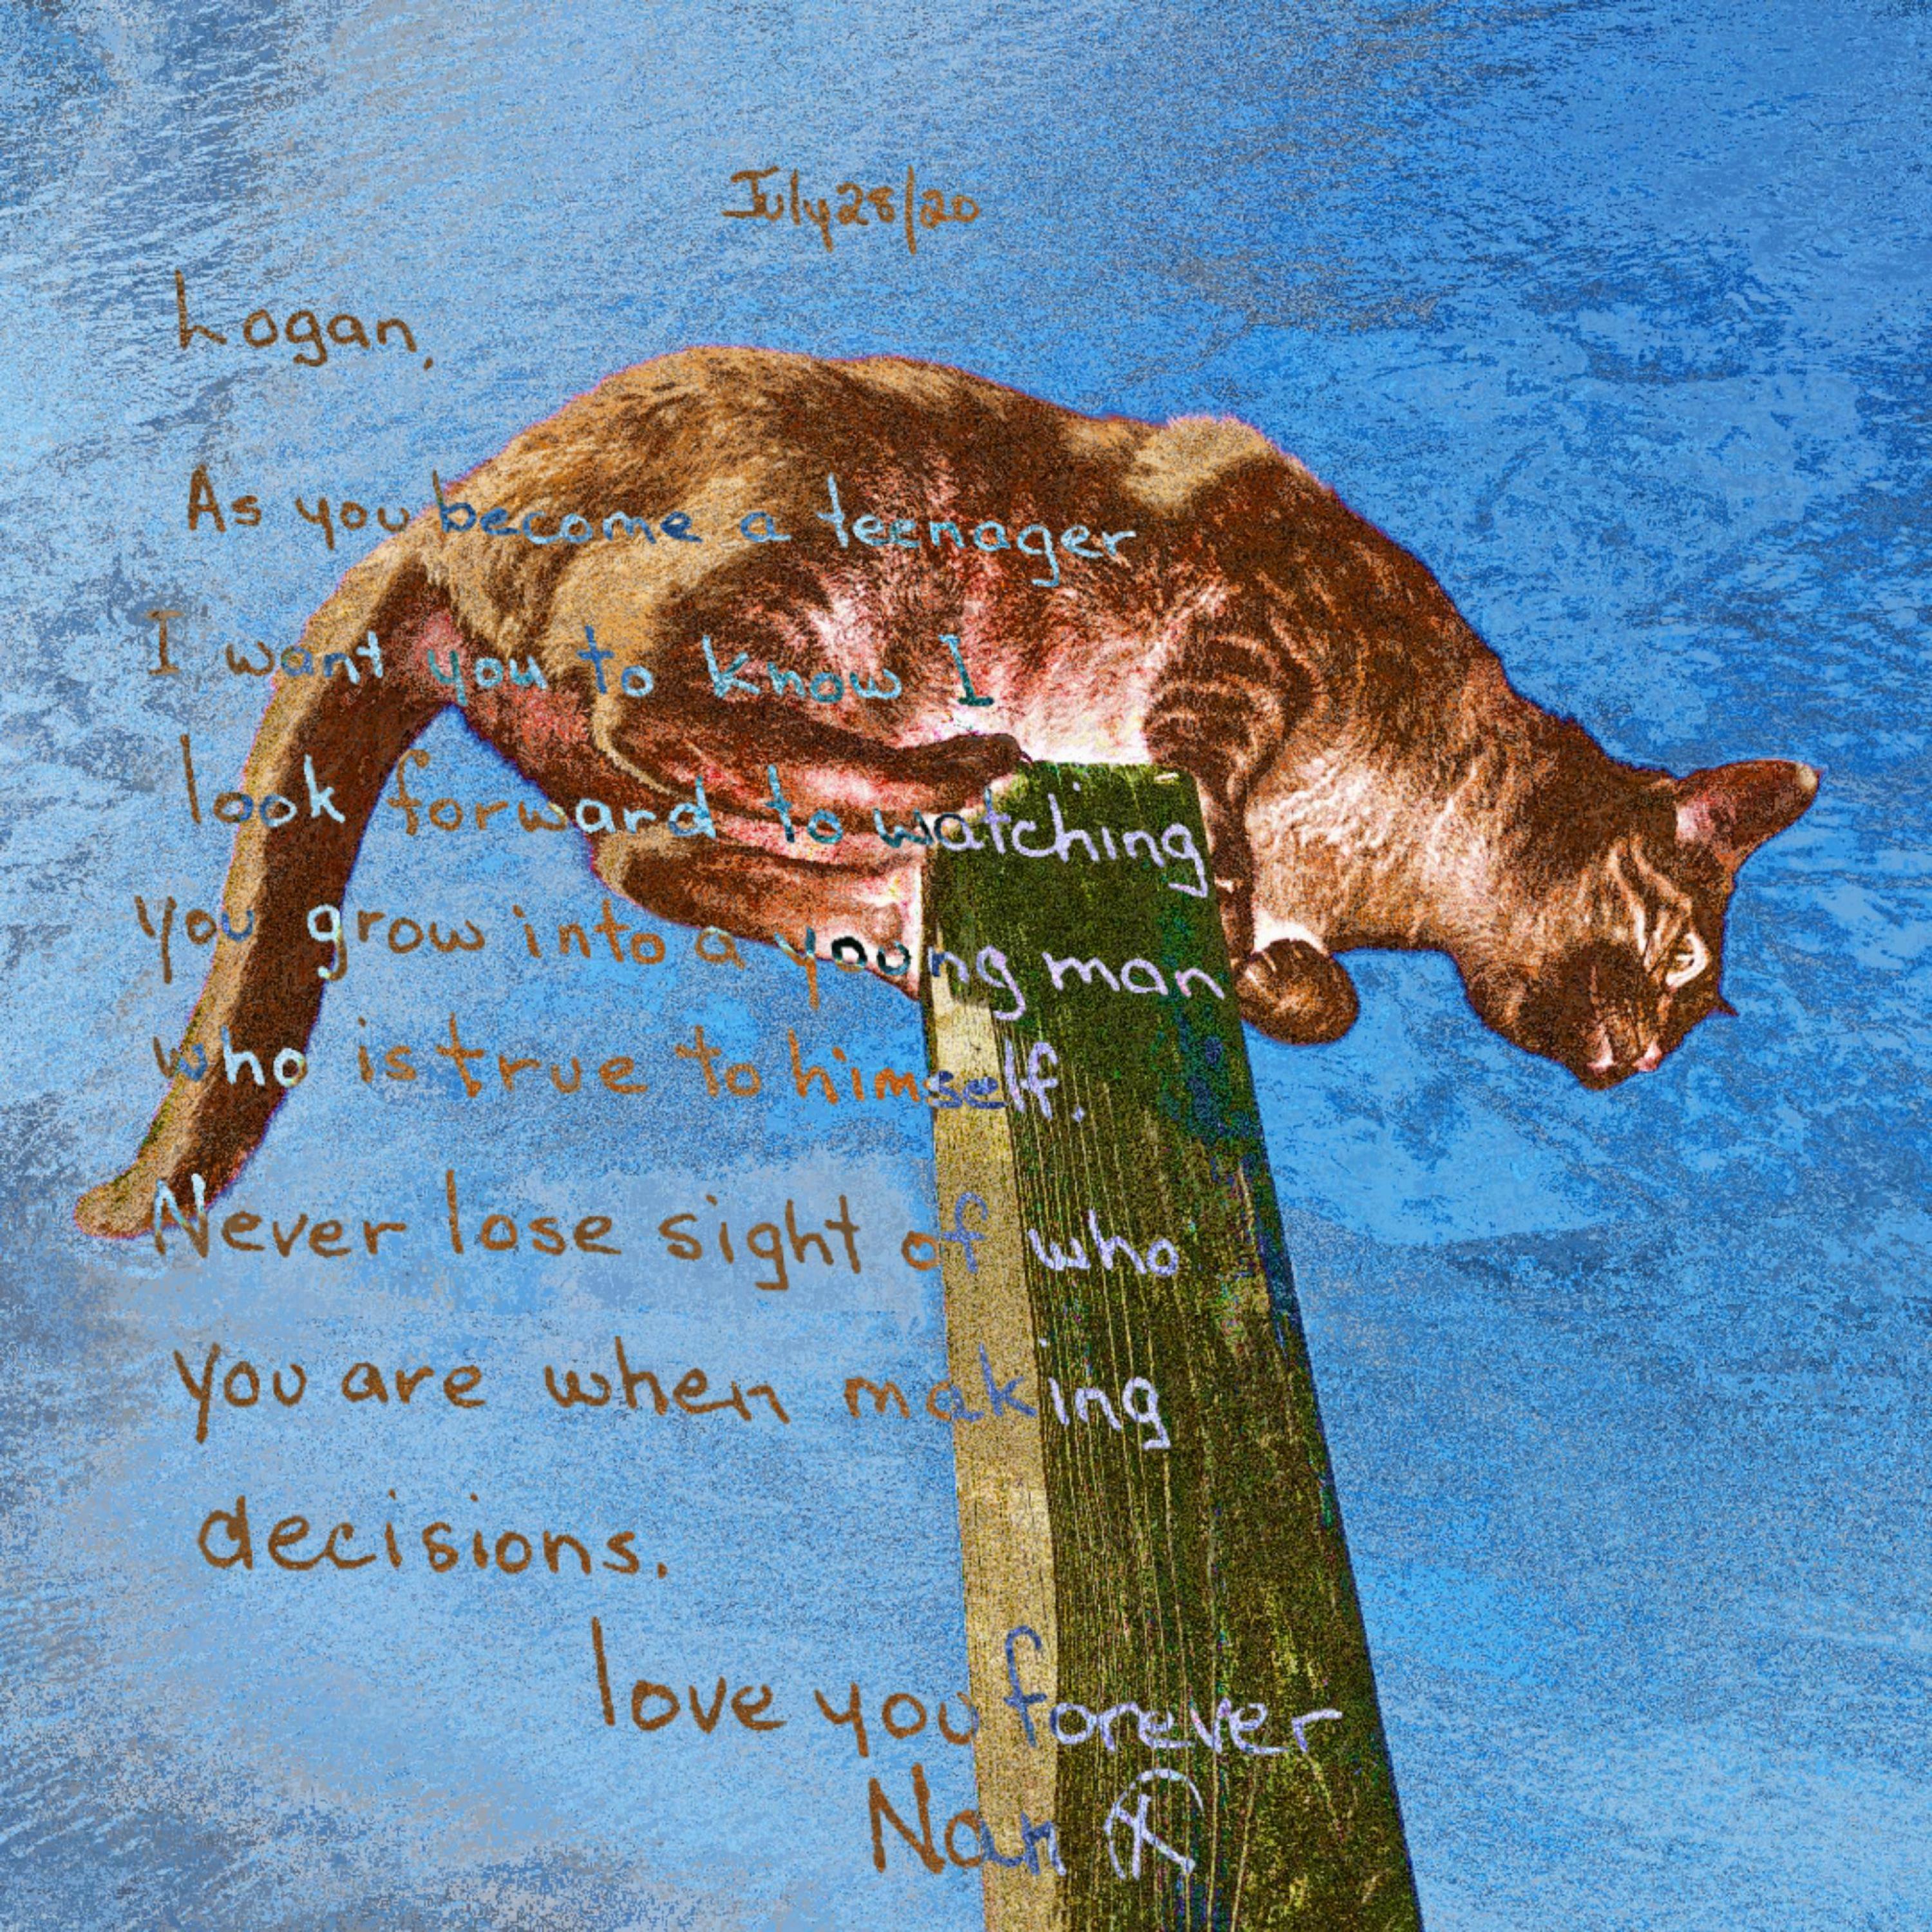 July 28/20
Logan,
As you become a teenager
I want you to know I
look forward to watching
you grow into a young man
who is true to himself.
Never lose sight of who
you are when making
decisions.
love you forever
Nan